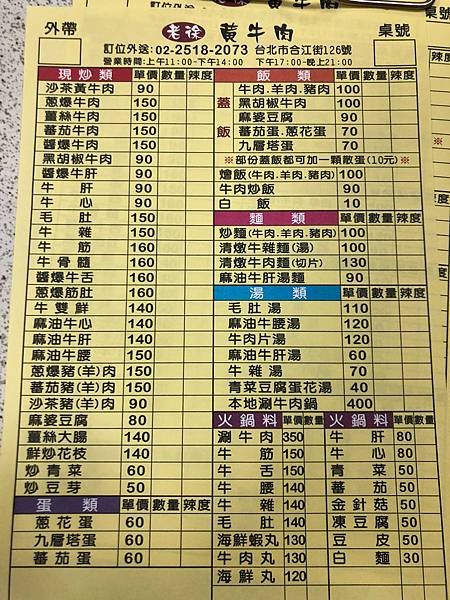 外帶
老徐 黃牛肉
桌號
訂位外送:02-2518-2073 台北市合江街126號
營業時間:上午11:00-下午14:00 下午17:00-晚上21:00
現炒類 單價 數量 辣度
沙茶黃牛肉 90
蔥爆牛肉 150
薑絲牛肉 150
蕃茄牛肉 150
醬爆牛肉 150
黑胡椒牛肉 90
醬爆牛肝 90
牛肝 90
牛心 90
毛肚 150
牛雜 150
牛筋 160
牛骨髓 160
醬爆牛舌 160
蔥爆筋肚 160
牛雙鮮 140
麻油牛心 140
麻油牛肝 140
麻油牛腰 140
蔥爆豬(羊)肉 150
蕃茄豬(羊)肉 150
沙茶豬(羊)肉 90
麻婆豆腐 80
薑絲大腸 140
鮮炒花枝 140
炒青菜 60
炒豆芽 50
蛋類 單價 數量 辣度
蔥花蛋 60
九層塔蛋 60
蕃茄蛋 60
飯類 單價 數量 辣度
蓋飯
牛肉.羊肉.豬肉 100
黑胡椒牛肉 100
麻婆豆腐 90
蕃茄蛋.蔥花蛋 70
九層塔蛋 70
※部份蓋飯都可加一顆散蛋(10元)※
燴飯(牛肉.羊肉.豬肉) 100
牛肉炒飯 90
白飯 10
麵類 單價 數量 辣度
炒麵(牛肉.羊肉.豬肉) 100
清燉牛雜麵(湯) 100
清燉牛肉麵(切片) 130
麻油牛肝湯麵 90
湯類 單價 數量 辣度
毛肚湯 110
麻油牛腰湯 120
牛肉片湯 120
麻油牛肝湯 60
牛雜湯 70
青菜豆腐蛋花湯 40
本地涮牛肉鍋 400
火鍋料 單價 數量 火鍋料 單價 數量
涮牛肉 350 牛肝 80
牛筋 150 牛心 80
牛舌 150 青菜 50
牛腰 140 蕃茄 50
牛雜 140 金針菇 50
毛肚 140 凍豆腐 50
海鮮蝦丸 130 豆皮 50
牛肉丸 130 白麵 30
海鮮丸 120